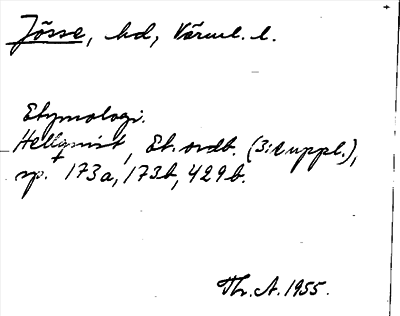 Jösse, hd, Värml. l.
Etymologi.
Hellquist, Et. ordb. (3:e uppl.),
sp. 173a, 173b, 429b.
Th. A. 1955.